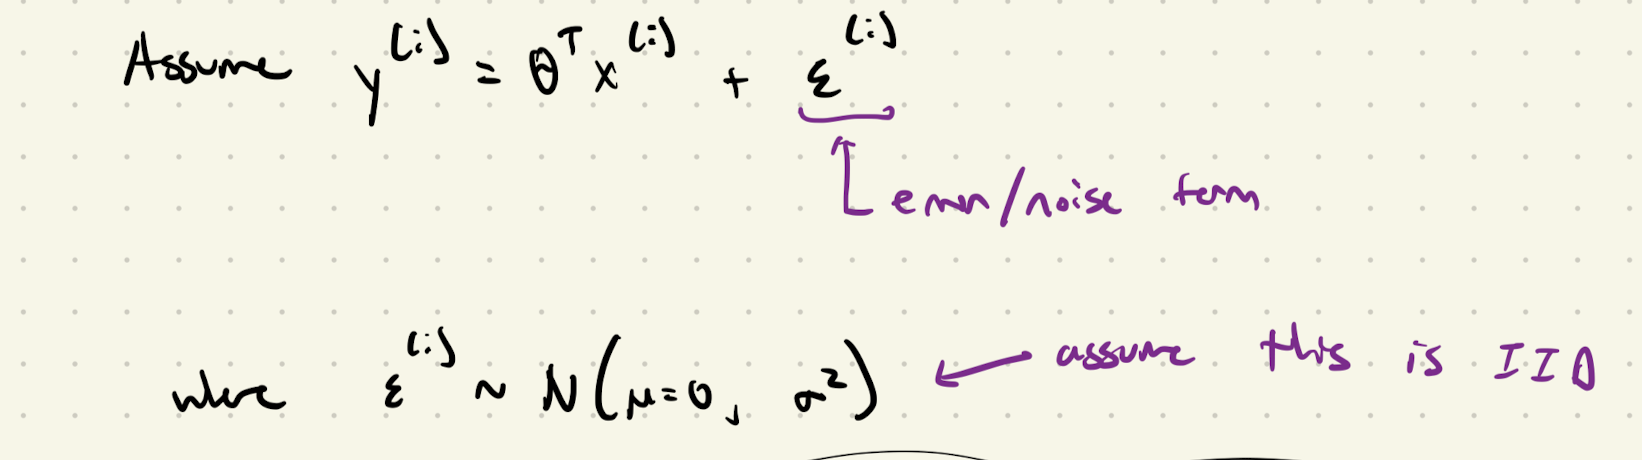 Assume y^(i) = θ^T x^(i) + ε^(i)
error/noise term
where ε^(i) ~ N(μ=0, σ²) ← assume this is IID